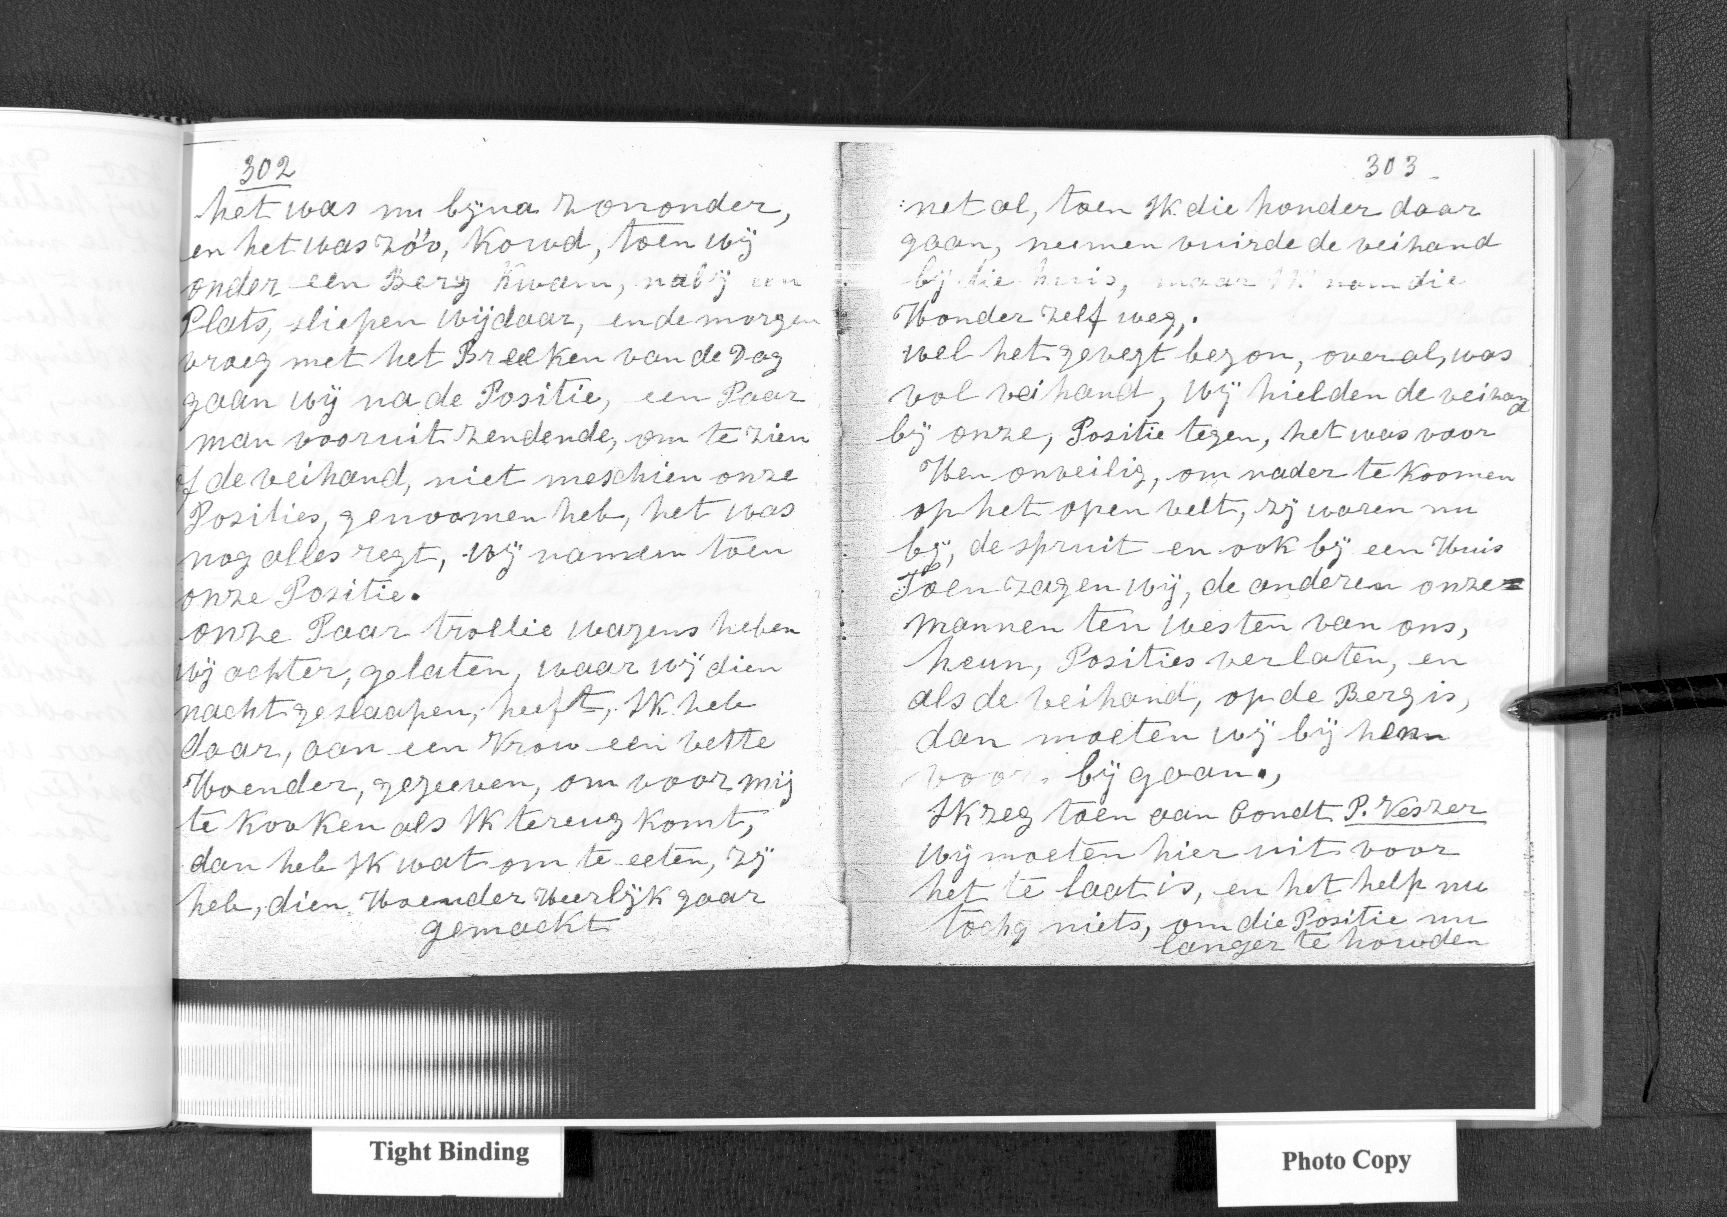 302
het was nu byna zononder,
en het was zóó, kowd, toen wij
onder een Berg kwam, nabij een
Plats, sliepen wijdaar, en de morgen
vroeg met het Breeken van de Dag
gaan wij na de Positie, een Paar
man vooruit zendende, om te zien
of de veihand, niet meschien onze
Posities, genoomen heb, het was
nog alles regt, wij namen toen
onze Positie.
onze Paar trollie wagens heben
wij achter, gelaten, waar wij dien
nacht geslaapen, heeft, Ik heb
daar, aan een Vrow een vette
Hoender, gegeeven, om voor mij
te kooken als Ik tereug komt,
dan heb Ik wat om te eeten, zij
heb, dien Hoender Heerlijk gaar
gemackt
303
net al, toen Ik die honder daar
gaan, neumen vuirde de veihand
bij die huis, maar Ik nam die
Honder zelf weg,.
wel het gevegt begon, overal, was
vol veihand, wij hielden de veihand
bij onze, Positie tegen, het was voor
Hen onveilig, om nader te koomen
op het open velt, zij waren nu
bij, de spruit en ook bij een Huis
Toen zagen wij, de anderen onze=
mannen ten westen van ons,
heun, Posities verlaten, en
als de veihand, op de Berg is,
dan moeten wij bij hem
voor bij gaan.,
Ik zeg toen aan Condt P. Veszer
wij moeten hier uit voor
het te laat is, en het help nu
tochg niets, om die Positie nu
langer te howden
Tight Binding
Photo Copy